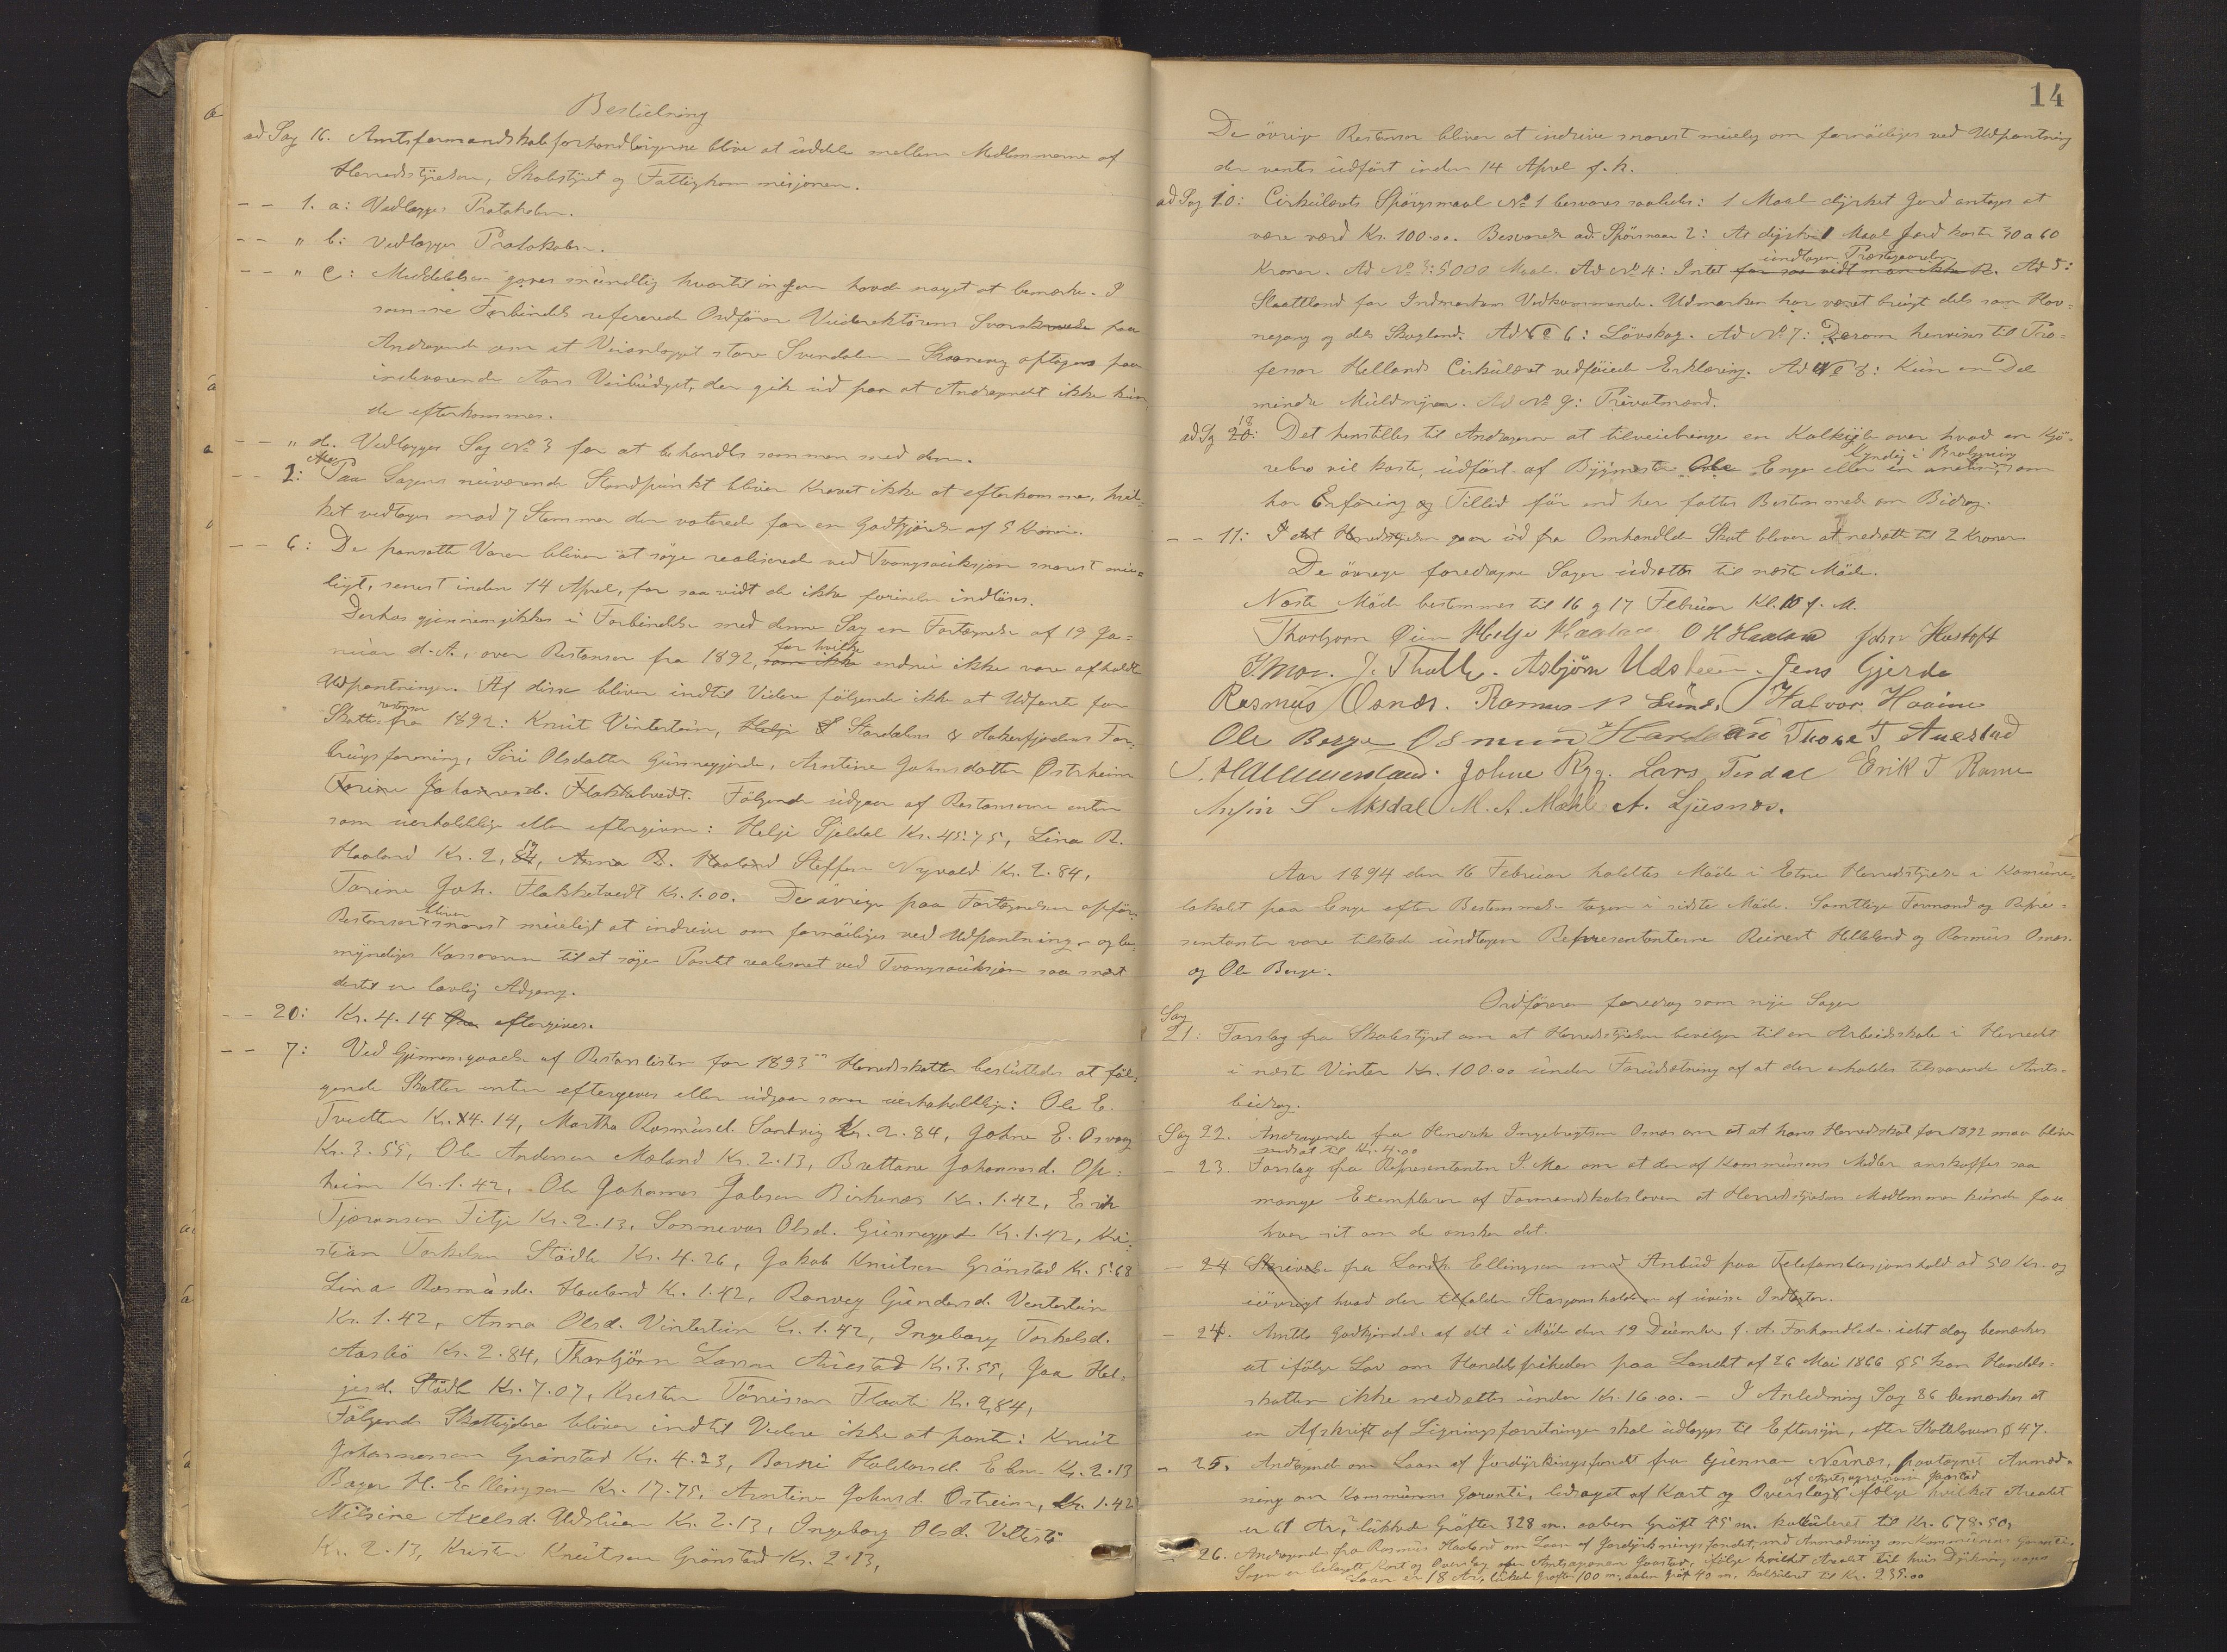 Beslutning
ad Sag 16. Amtsformandskabsforhandlingerne blive at uddele mellem Medlemmerne af
Herredsstyrelsen, Skolestyret og Fattigkommisjonen.
- - 1. a: Vedlægges Protokolen.
- - " b: Vedlægges Protokolen.
- - " c: Meddelelsen gjøres mundtlig hvortil ingen havde noget at bemærke. I
samme Forbindelse refererede Ordføreren Veidirektørens Svarskrivelse paa
Andragende om at Veianlægget store Svendalen - Skaanevig optages paa
indeværende Aars Veibudget, der gik ud paa at Andragendet ikke kun-
de efterkommes.
- - " d. Vedlægges Sag No 3 for at behandles sammen med den.
- - 2: Paa Sagens nuværende Standpunkt bliver Kravet ikke at efterkomme, hvil-
ket vedtoges mod 7 Stemmer der voterede for en Godtgjørelse af 5 Kroner.
- - 6: De pansatte Varer bliver at søge realiserede ved Tvangsauksjon snarest mu-
ligt, senest inden 14 April, for saavidt de ikke forinden indløses.
Derhos gjennemgikkes i Forbindelse med denne Sag en Fortegnelse af 19 Ja-
nuar d. A., over Restanser fra 1892, for hvilke endnu ikke vare afholdte
Udpantninger. Af disse bliver indtil Videre følgende ikke at Udpante for
Skatterestanser fra 1892: Knut Vinterlein, Stordalens & Aakrefjordens For-
brugsforening, Siri Olsdatter Gunnegjerde, Arntine Johnsdatter Østrheim
Torine Johannesd. Flakketvedt. Følgende udgaar af Restanserne enten
som uerholdelige eller eftergivne: Helje Sjeldal Kr. 45.75, Lina R.
Haaland Kr. 2, Anna R. Haaland Steffen Nyvold Kr. 2.84,
Torine Joh. Flakketvedt Kr. 1.00. De øvrige paa Fortegnelsen opfør.
Restanser bliver snarest muligt at indrive om fornødiges ved Udpantning og be-
myndiges Kassereren til at søge Pantet realiseret ved Tvangsauksjon saa snart
dertil er lovlig Adgang.
- - 20: Kr. 4.14 eftergives.
- - 7: Ved Gjennemgaaelse af Restanselisten for 1893 Herredsskatter besluttedes at føl-
gende Skatter enten eftergives eller udgaar som uerholdelige: Ole E.
Tvedten Kr. 14.14, Martha Rasmusd. Sandvig Kr. 2.84, Johne E. Osvag
Kr. 3.55, Ole Andersen Mæland Kr. 2.13, Brettane Johannesd. Op-
heim Kr. 1.42, Ole Johannes Jobsen Birkenes Kr. 1.42, Erik
Tjøransen Fitje Kr. 2.13, Sonneva Olsd. Gunnegjerde Kr. 1.42, Kri-
stian Torkelsen Stødle Kr. 4.26, Jakob Knutsen Grønstad Kr. 5.68
Lina Rasmusd. Haaland Kr. 1.42, Ranveg Gundersd. Vinterlein
Kr. 1.42, Anna Olsd. Vinterlein Kr. 1.42, Ingeborg Torkelsd.
Aasbø Kr. 2.84, Thorbjørn Larsen Auestad Kr. 3.55, Jaa Hel-
jesd. Stødle Kr. 7.07, Kresten Tørrissen Flaate Kr. 2,84,
Følgende Skatteydere bliver indtil Videre ikke at pante: Knut
Johannessen Grønstad Kr. 4.23, Haldorsd. Kr. 2.13
Bager H. Ellingsen Kr. 17.75, Arntine Johnsd. Østreim, Kr. 1.42
Nilsine Axelsd. Udsteen Kr. 2.13, Ingeborg Olsd.
Kr. 2.13, Kresten Knutsen Grønstad Kr. 2.13,
14
De øvrige Restanser bliver at indrive snarest muelig om fornødiges ved Udpantning
der ventes udført inden 14 April f. k.
ad Sag 10: Cirkulærets Spørgsmaal No 1 besvares saaledes: 1 Maal dyrket Jord antages at
være værd Kr. 100.00. Besvarelse ad Spørsmaal 2: At dyrke 1 Maal Jord koster 30 a 60
Kroner. Ad No 3: 5000 Maal. Ad No 4: Intet undtagen Præstegaarden. Ad 5:
Slaatteland for Indmarkens Vedkommende. Udmarken har været brugt dels som Hav-
negang og dels Skogland. Ad No 6: Løvskog. Ad No 7: Derom henvises til Pro-
fessor Hellands Cirkulæret vedføiede Erklæring. Ad No 8: Kun en Del
mindre Muldmyrer. Ad No 9: Privatmænd.
ad Sag 18: Det henstilles til Andragerne at tilveiebringe en Kalkyle over hvad en Kjø-
rebro vil koste, udført af Bygmester Ole Enge eller en anden, Kyndig i Brobygning som
har Erfaring og Tillid før end her fattes Bestemmelse om Bidrag.
- - 11: Idet Herredsstyrelsen gaar ud fra Omhandlede Skat bliver at nedsætte til 2 Kroner
De øvrige foredragne Sager udsættes til næste Møde.
Næste Møde bestemmes til 16 og 17 Februar Kl. 10 f. M.
Thorbjørn Øien Helje Haaland O H Haaland John Hustoft
I. Moe. J. Tholle. Asbjørn Udsteen. Jens Gjerde
Rasmus Osnes. Rasmus N Lund, Halvor Haaime
Ole Berge Osmun Thore T Auestad
J. Hammersland. Johne Rygg. Lars Tesdal Erik T Rame
S Miksdal M. A. Mæhle A. Ljusnes.
Aar 1894 den 16 Februar holdtes Møde i Etne Herredsstyrelse i Komune-
lokalet paa Enge efter Bestemmelse tagen i sidste Møde. Samtlige Formænd og Repræ-
sentanter vare tilstede undtagen Repræsentanterne Reinert Helleland og Rasmus Osnes
og Ole Berge.
Ordføreren foredrog som nye Sager
Sag
21: Forslag fra Skolestyret om at Herredsstyrelsen bevilger til en Arbeidsskole i Herredet
i næste Vinter Kr. 100.00 under Forudsætning af at der erholdes tilsvarende Amts-
bidrag.
Sag 22. Andragende fra Henrik Ingebrigtsen Osnes om at at hans Herredsskat for 1892 maa blive
nedsat til Kr. 4.00
- 23. Forslag fra Repræsentanten I. Moe om at der af Kommunens Midler anskaffes saa
mange Exemplarer af Formandskabsloven at Herredsstyrelsens Medlemmer kunde faa
hver sit om de ønsker det.
- 24 Skrivelse fra Landh. Ellingsen med Anbud paa Telefonstasjonshold ad 50 Kr. og
iøvrigt hvad der tilfalder Stasjonsholderen af uvisse Indtægter.
- 24. Amtets Godkjendelse af det i Møde den 19 December f. A. Forhandlede. idet dog bemærkes
at ifølge Lov om Handelsfriheden paa Landet af 26 Mai 1866 § 5 kan Handels-
skatten ikke nedsættes under Kr. 16.00. - I Anledning Sag 86 bemærkes at
en Afskrift af Ligningsforretningen skal udlægges til Eftersyn, efter Skattelovens § 47.
- 25. Andragende om Laan af Jorddyrkingsfondet fra Gunnar Nernæs, paategnet Anmod-
ning om Kommunens Garanti, ledsaget af Kart og Overslag af Amtsagronom Jaastad ifølge hvilket Arealet
er 61 Ar, lukkede Grøfter 328 m. aaben Grøft 45 m. kalkuleret til Kr. 678.50,
- 26. Andragende fra Rasmus Haaland om Laan af Jorddyrkningsfondet, med Anmodning om Kommunens Garanti.
Sagen er bilagt Kart og Overslag af Amtsagronom Jaastad, ifølge hvilket Arealet til hvis Dyrkning søges
Laan er 18 Ar, lukkede Grøfter 100 m. aaben Grøft 40 m. kalkuleret til Kr. 239.00